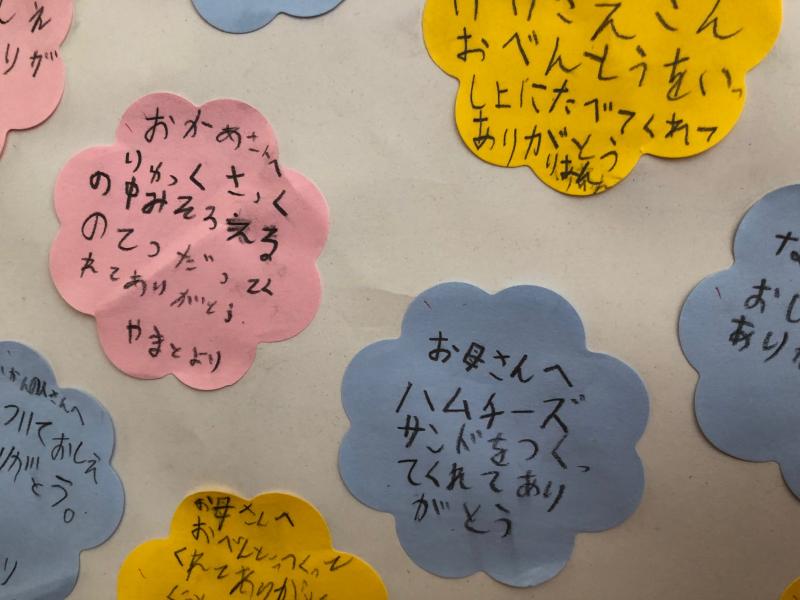 しえ
りが
おべんとうをいっ
し上にたべてくれて
ありがとう
おかあさんへ
りゅっくさっく
の中みそろえる
のてつだってく
れてありがとう。
やまとより
お母さんへ
ハムチーズ
サンドをつくっ
てくれてあり
がとう
な
おし
ありが
さんへ
ておしえ
りがとう。
り
お母さんへ
おべんとうつくって
くれてありがとう